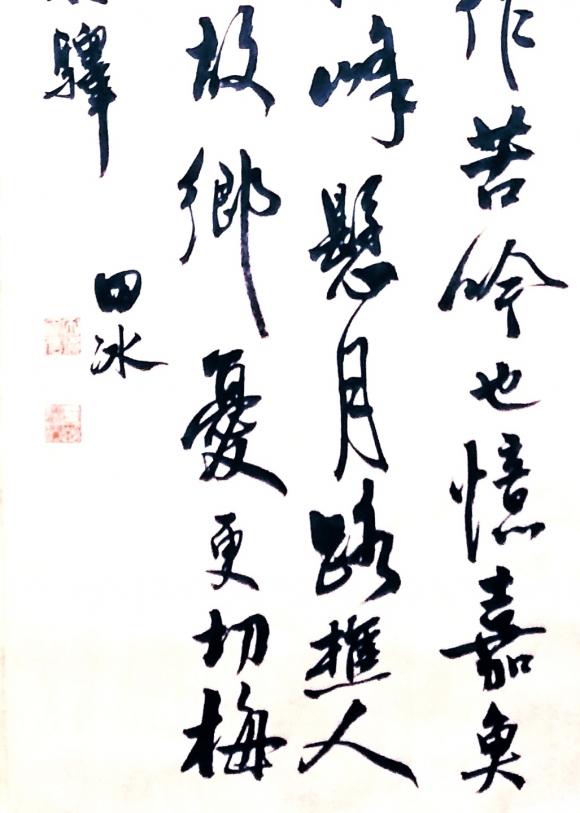 作苦吟也憶嘉魚
峰懸月路樵人
故鄉憂更切梅
驛
田冰